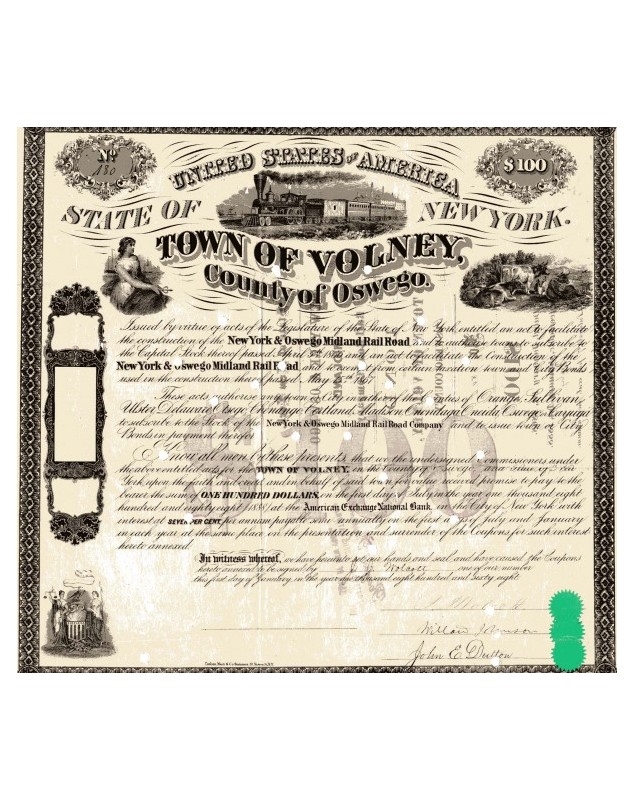 Nº 180
$100
UNITED STATES OF AMERICA
STATE OF NEW YORK.
TOWN OF VOLNEY,
County of Oswego.
Issued by virtue of acts of the Legislature of the State of New York entitled an act to facilitate
the construction of the New York & Oswego Midland Rail Road and to authorise towns to subscribe to
the Capital Stock thereof passed April 5th and an act to facilitate the Construction of the
New York & Oswego Midland Rail Road and to exempt from certain taxation town and City Bonds
used in the construction thereof passed May
These acts authorise any town or City in either of the Counties of Orange, Sullivan,
Ulster, Delaware, Otsego, Chenango, Cortland, Madison, Onondaga, Oneida, Oswego, Cayuga
to subscribe to the Stock of the New York & Oswego Midland Rail Road Company and to issue town or City
Bonds in payment therefor
Know all men by these presents, that we the undersigned commissioners under
the above entitled acts for the TOWN OF VOLNEY, in the County of Oswego and State of New
York upon the faith and credit and in behalf of said town for value received promise to pay to the
bearer the sum of ONE HUNDRED DOLLARS, on the first day of July in the year one thousand eight
hundred and eighty eight at the American Exchange National Bank, in the City of New York with
interest at SEVEN PER CENT, per annum payable semi annually on the first days of July and January
in each year at the same place on the presentation and surrender of the Coupons for such interest
hereto annexed
In witness whereof, we have hereunto set our hands and seal and have caused the Coupons
hereto annexed to be signed by Wolcott one of our number
this first day of January in the year one thousand eight hundred and sixty eight.
Willard Johnson
John E Dutton